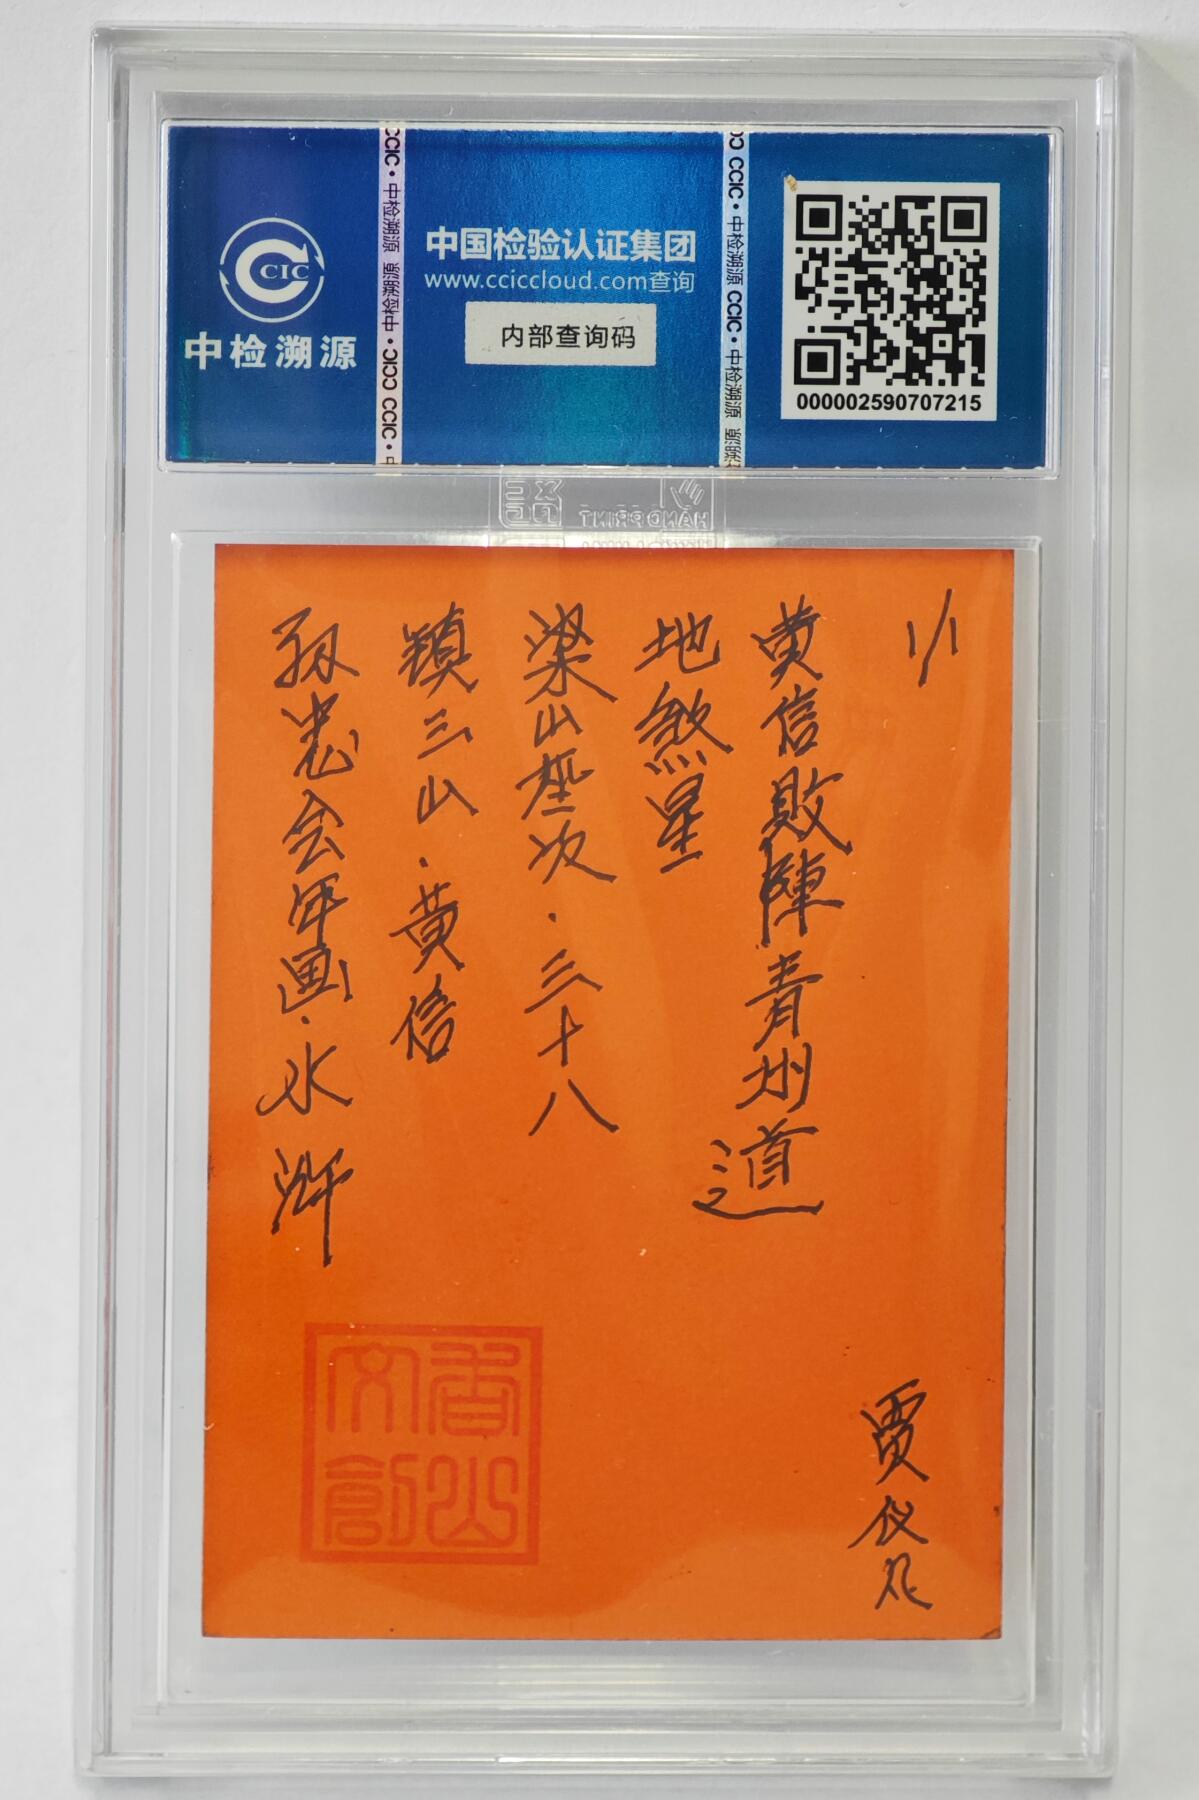 CCIC
中检溯源
中国检验认证集团
www.cciccloud.com查询
内部查询码
000002590707215
CCIC·中检溯源 CCIC·中检溯源
HAND PRINT
1/1
黄信敗陣青州道
地煞星
梁山座次·三十八
镇三山·黄信
孙忠会年画·水浒
贾仪
香山文創